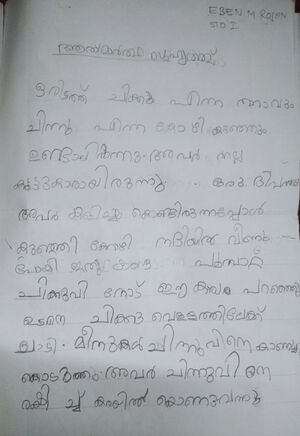 EBEN M ROJAN
STD I
ആത്മാർത്ഥ സുഹൃത്ത്
ഒരിടത്ത് ചിക്കു എന്ന താറാവും
ചിന്നു എന്ന കോഴി കുഞ്ഞും
ഉണ്ടായിരുന്നു. അവർ നല്ല
കൂട്ടുകാരായിരുന്നു. ഒരു ദിവസം
അവർ കളിച്ചു കൊണ്ടിരുന്നപ്പോൾ
കുഞ്ഞി കോഴി നദിയിൽ വീണു
പോയി പൂമ്പാറ്റ
ചിക്കുവി നോട് ഈ കാര്യം പറഞ്ഞു
ഉടനെ ചിക്കു വെള്ളത്തിലേക്ക്
ചാടി. മീനുകൾ ചിന്നുവിനെ കാണിച്ചു
കൊടുത്തു. അവർ ചിന്നുവി നെ
രക്ഷി ച്ച് കരയിൽ കൊണ്ടുവന്നു